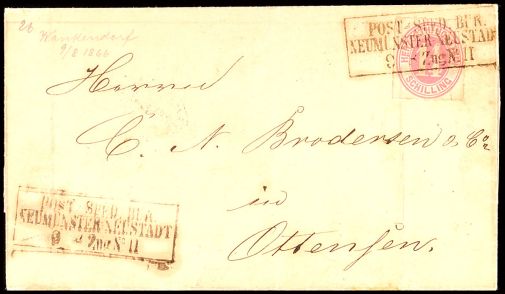 26
Wankendorf
9/8 1866
POST SPED. BUR.
NEUMÜNSTER-NEUSTADT
9 8 Zug № 11
SCHILLING
Herren
C. N. Brodersen & Co
in
Ottensen.
POST SPED. BUR.
NEUMÜNSTER-NEUSTADT
9 Zug № 11